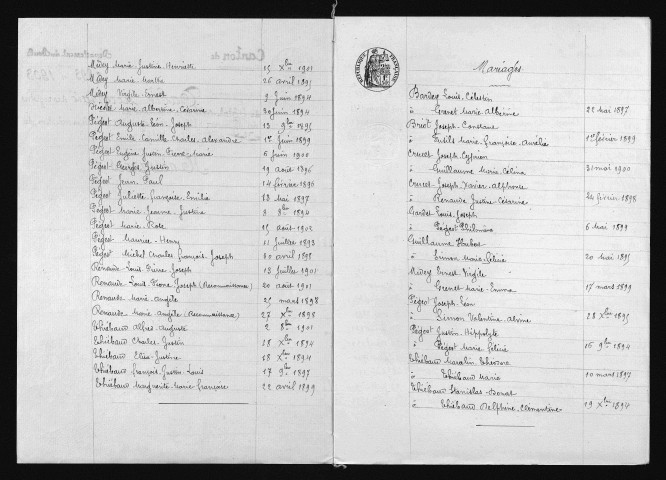 Médey Marie Justine Henriette 15 Xbre 1901
Médey Marie Marthe 26 avril 1891
Médey Virgile Ernest 9 Juin 1894
Marie Albertine Césarine 30 Juin 1894
Pégeot Auguste Léon Joseph 13 9bre 1895
Pégeot Emile Camille Charles Alexandre 1er Juin 1899
Pégeot Eugène Justin Pierre Marie 6 Juin 1900
Pégeot Georges Justin 19 août 1896
Pégeot Jean Paul 14 février 1896
Pégeot Juliette Françoise Emilia 13 mai 1897
Pégeot Marie Jeanne Justine 8 8bre 1894
Pégeot Marie Rose 15 août 1902
Pégeot Maurice Henry 11 Juillet 1893
Pégeot Michel Charles François Joseph 10 avril 1898
Renaude Louis Pierre Joseph 12 Juillet 1901
Renaude Louis Pierre Joseph (Reconnaissance) 20 août 1901
Renaude Marie Angèle 25 mars 1898
Renaude Marie Angèle (Reconnaissance) 27 Xbre 1898
Thiébaud Albert Auguste 2 8bre 1901
Thiébaud Charles Justin 28 Xbre 1894
Thiébaud Elise Justine 28 Xbre 1894
Thiébaud François Justin Louis 17 9bre 1897
Thiébaud Marguerite Marie Françoise 22 avril 1899
RÉPUBLIQUE FRANÇAISE
Mariages
Bardey Louis Célestin
à Grenet Marie Albertine 22 mai 1897
Briot Joseph Constant
à Marie Françoise Aurélie 1er février 1899
Cuccet Joseph Cyprien
à Guillaume Marie Célina 31 mai 1900
Cuccet Joseph Xavier Alphonse
à Renaude Justine Césarine 24 février 1898
Louis Joseph
à Pégeot Philomène 6 mai 1899
Guillaume Hubert
à Simon Marie Célinie 20 mai 1895
Médey Ernest Virgile
à Grenet Marie Emma 17 mars 1899
Pégeot Joseph Léon
à Simon Valentine Alvine 28 Xbre 1895
Pégeot Justin Hippolyte
à Pégeot Marie Célinie 15 9bre 1894
Thiébaud Théodore
à Thiébaud Marie 10 mars 1897
Thiébaud Stanislas Donat
à Thiébaud Delphine Clémentine 19 Xbre 1894